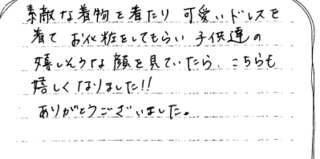 素敵な着物を着たり 可愛いドレスを
着て お化粧をしてもらい 子供達の
嬉しそうな顔を見ていたら、こちらも
嬉しくなりました!!
ありがとうございました。